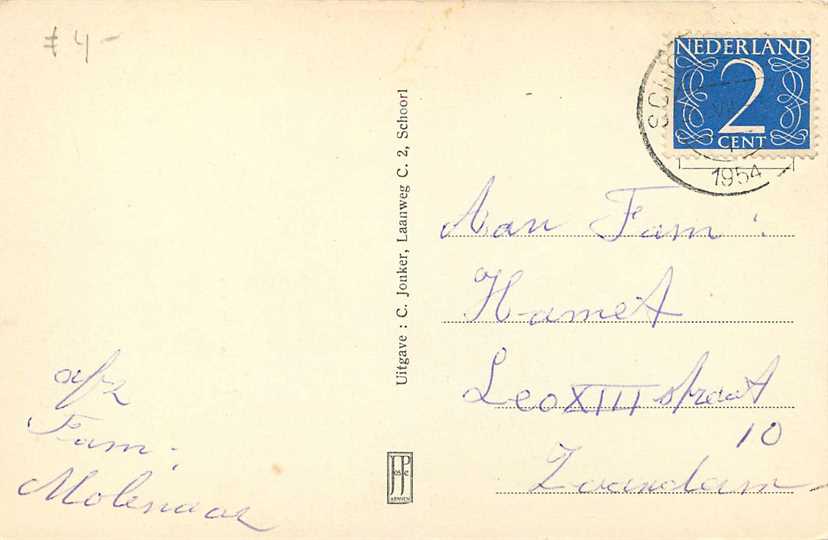 # 4 -
NEDERLAND
2
CENT
1954
Uitgave : C. Jonker, Laanweg C. 2, Schoorl
Aan Fam :
Hamet
Leo XIII straat
10
Zaandam
afz
Fam :
Molenaar